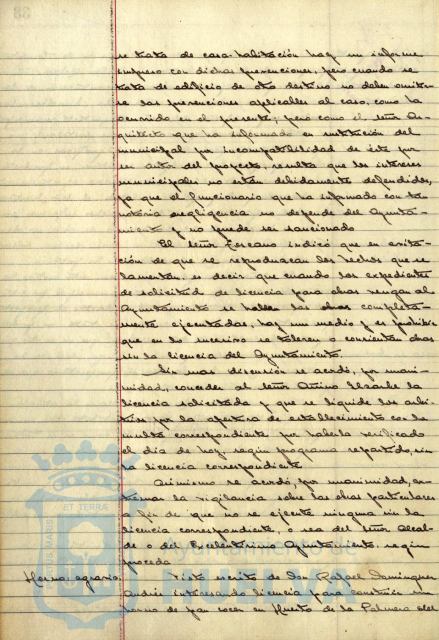 se trata de casa-habitación hay un informe
impreso con dichas prevenciones, pero cuando se
trata de edificio de otro destino no deben omitir-
se las prevenciones aplicables al caso, como ha
ocurrido en el presente; pero como el señor Ar-
quitecto que ha informado en sustitución del
municipal por incompatibilidad de éste por
ser autor del proyecto, resulta que los intereses
municipales no están debidamente defendidos,
ya que el funcionario que ha informado con ta
notoria negligencia no depende del Ayunta-
miento y no puede ser sancionado
El señor Lozcano indicó que en evita-
ción de que se reproduzcan los hechos que se
lamentan, es decir que cuando los expedientes
de solicitud de licencia para obras vengan al
Ayuntamiento se hallen las obras completa-
mente ejecutadas, hay un medio y es prohibir
que en lo sucesivo se toleren o consientan obras
sin la licencia del Ayuntamiento.
Sin mas discusión se acordó, por unani-
midad, conceder al señor
licencia solicitada y que se liquide los arbi-
trios por la apertura de establecimiento con la
multa correspondiente por haberla verificado
el dia de hoy, según programa repartido, sin
la licencia correspondiente
Asimismo se acordó, por unanimidad, ex-
tremar la vigilancia sobre las obras particulares
a fin de que no se ejecute ninguna sin la
licencia correspondiente, o sea del señor Alcal-
de o del Excelentisimo Ayuntamiento, según
proceda
Horno: agrario. Visto escrito de Don Rafael Dominguez
interesando licencia para construir un
horno de pan cocer en Huerto de la Palmera del
PORTUS MARIS ET TERRAE
Ayuntamiento de
HUELVA